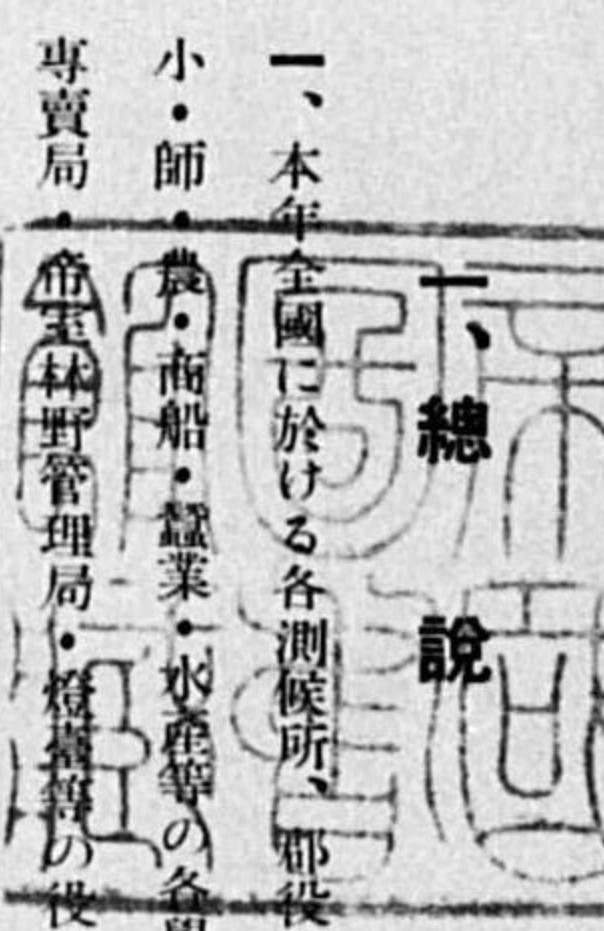 一、總說
一、本年全國に於ける各測候所、郡役
小・師・農・商船・蠶業・水產等の各
專賣局・帝室林野管理局・燈臺等の役